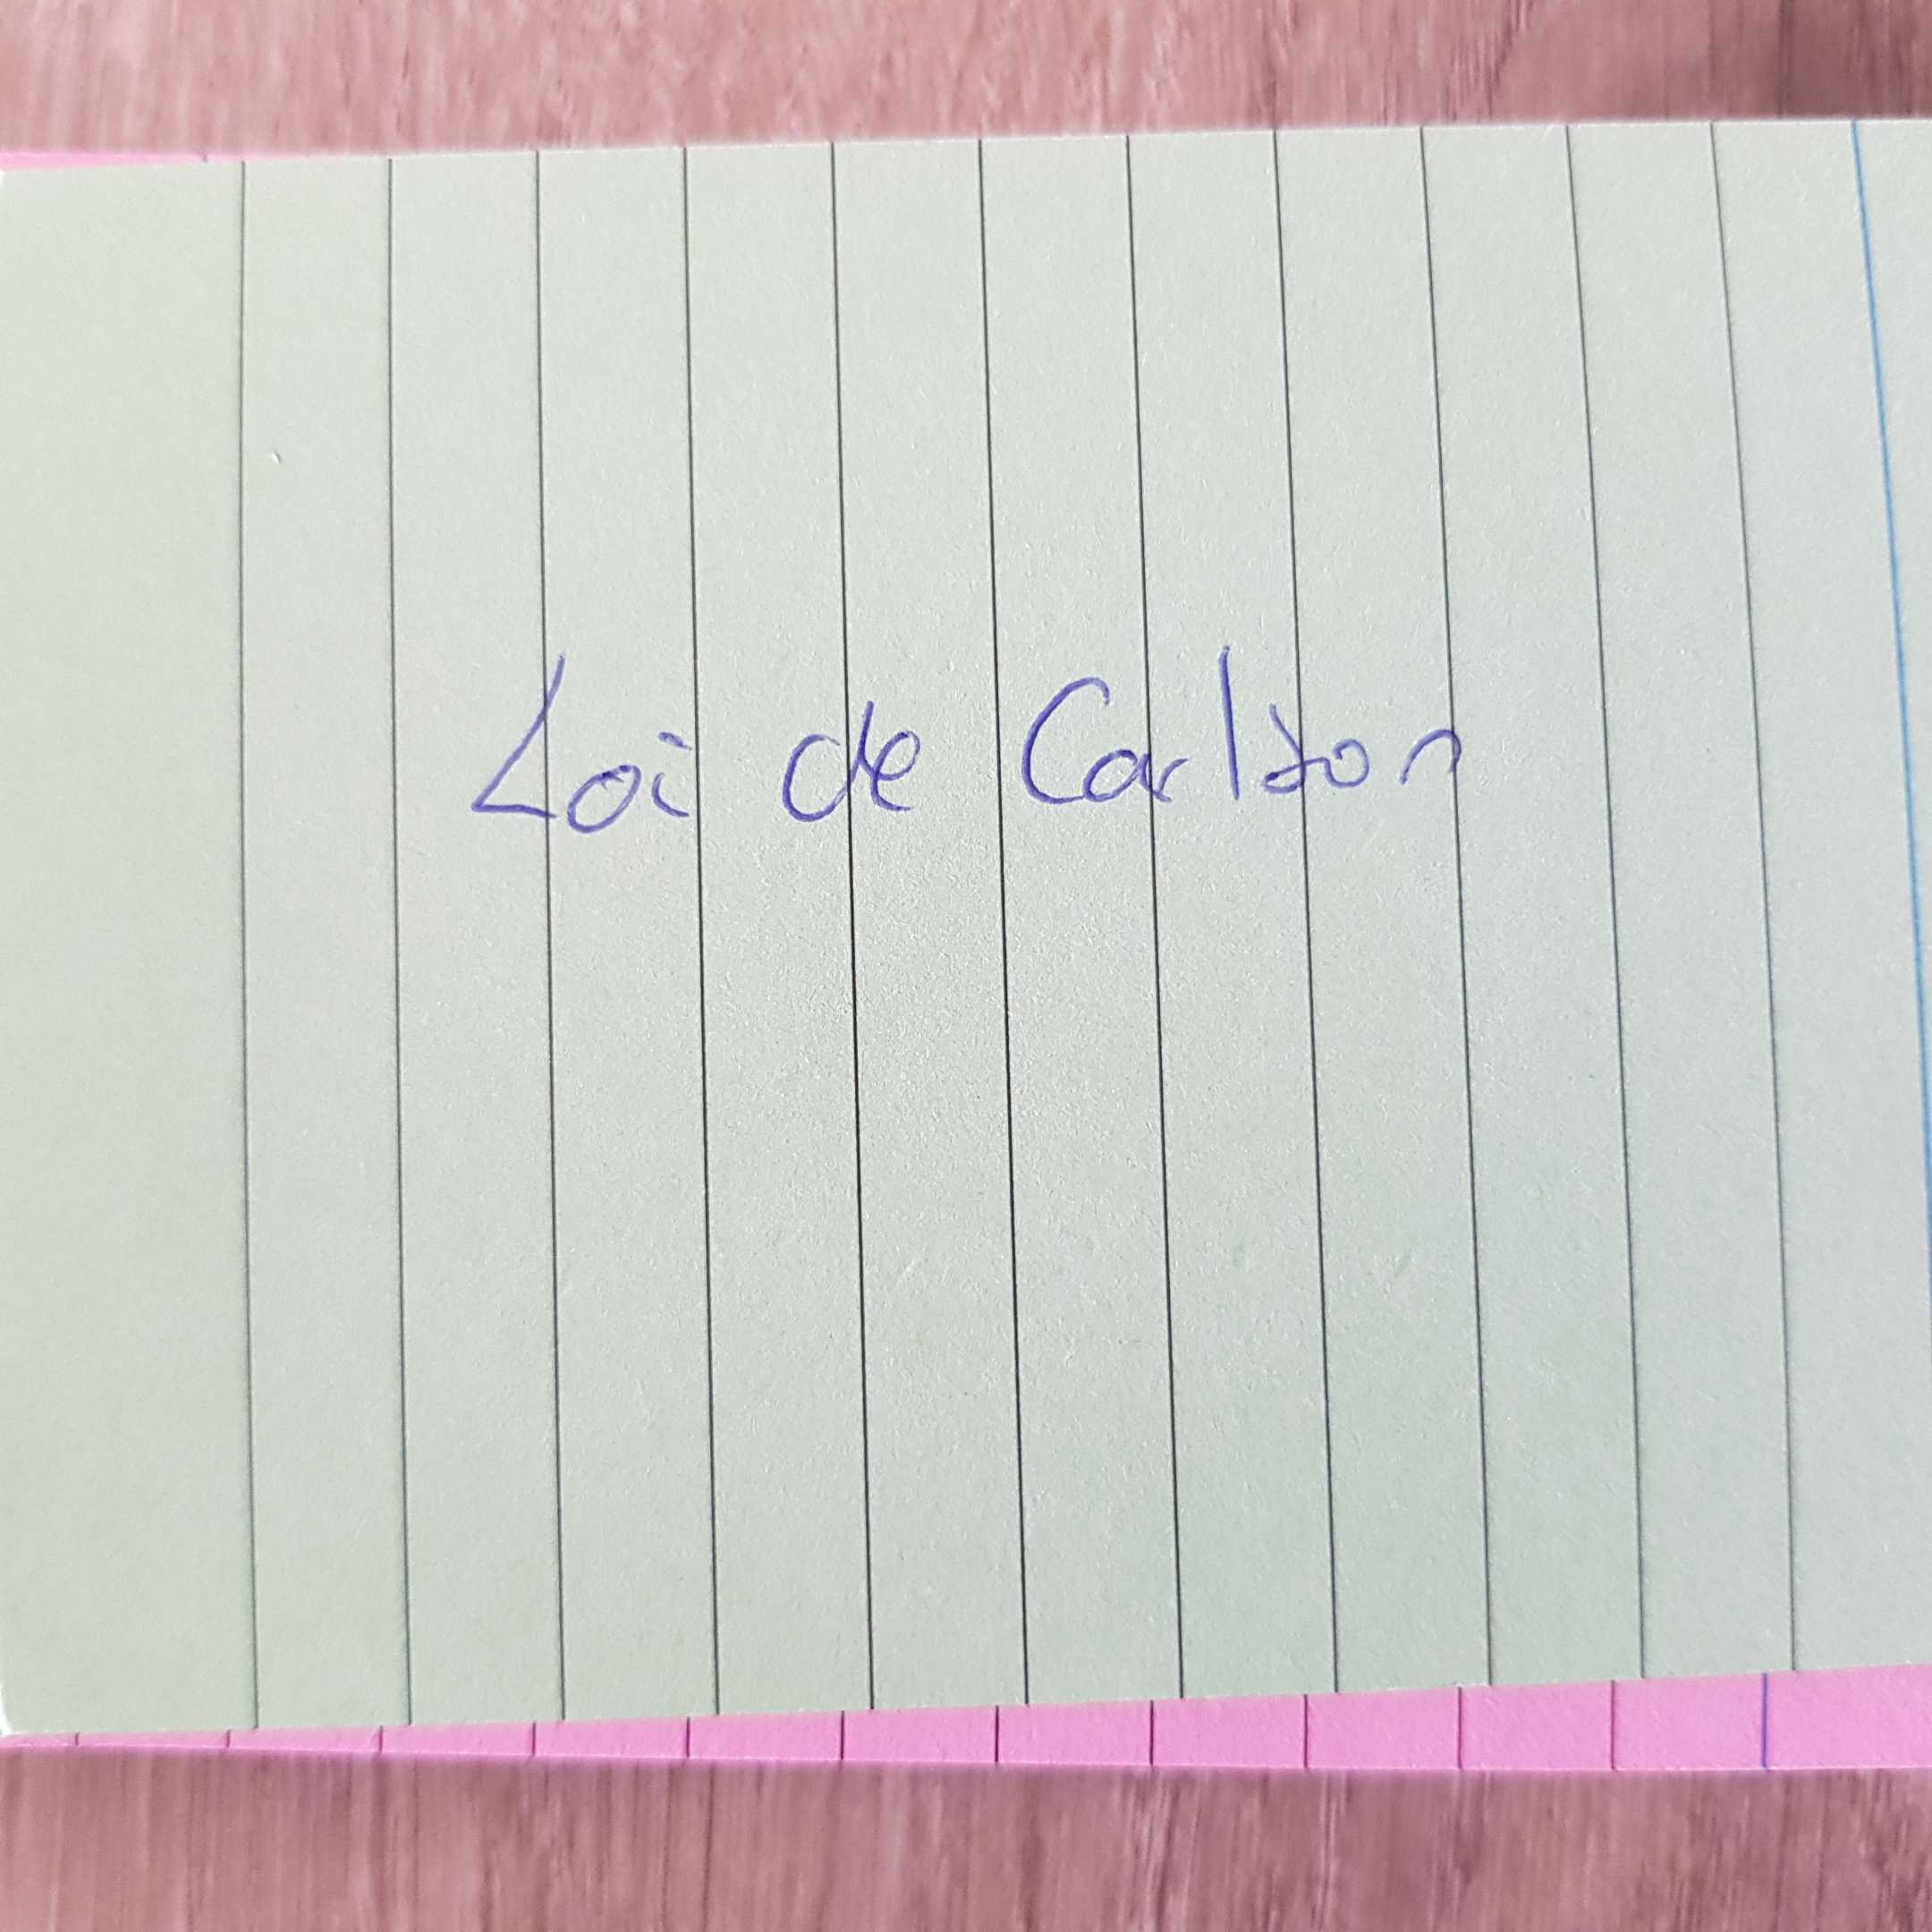 Loi de Carlton